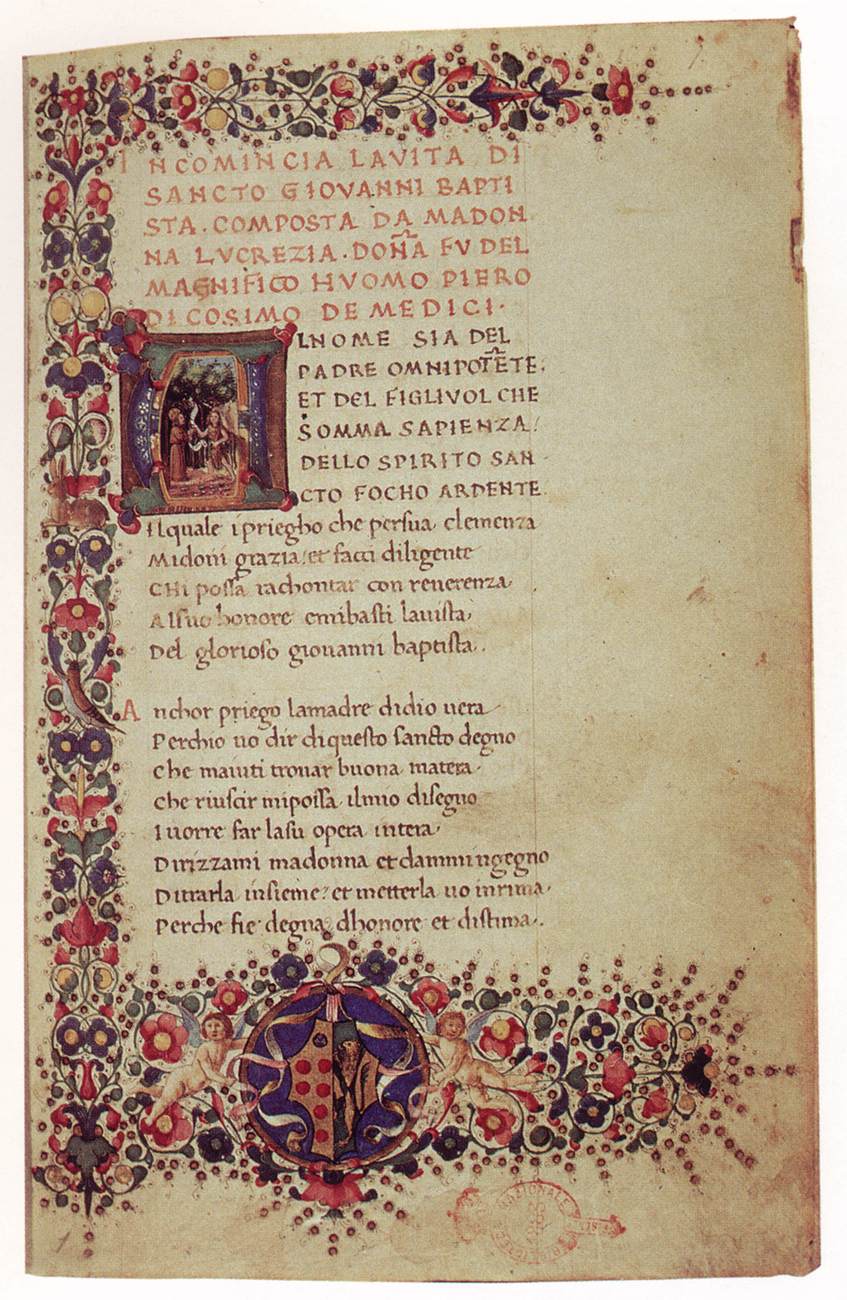 INCOMINCIA LAVITA DI
SANCTO GIOVANNI BAPTI
STA. COMPOSTA DA MADON
NA LVCREZIA. DOÑA FV DEL
MAGNIFICO HVOMO PIERO
DI COSIMO DE MEDICI.
LNOME SIA DEL
PADRE OMNIPOTE͂TE.
ET DEL FIGLIVOL CHE
SOMMA SAPIENZA.
DELLO SPIRITO SAN
CTO FOCHO ARDENTE.
Ilquale ipriegho che persua clemenza
Midoni grazia: et facci diligente
CHi possa rachontar con reuerenza
Alsuo honore
Del glorioso giouanni baptista..
Anchor priego lamadre didio uera
Perchio uo dir diquesto sancto degno
Che maiuti trouar buona matera
Che riuscir mipossa ilmio disegno
Iuorre far lasu opera intera
Dirizzami madonna et dammi ingegno
Ditrarla insieme: et metterla uo inrima.
Perche fie degna dhonore et distima..
NAZIONALE
1